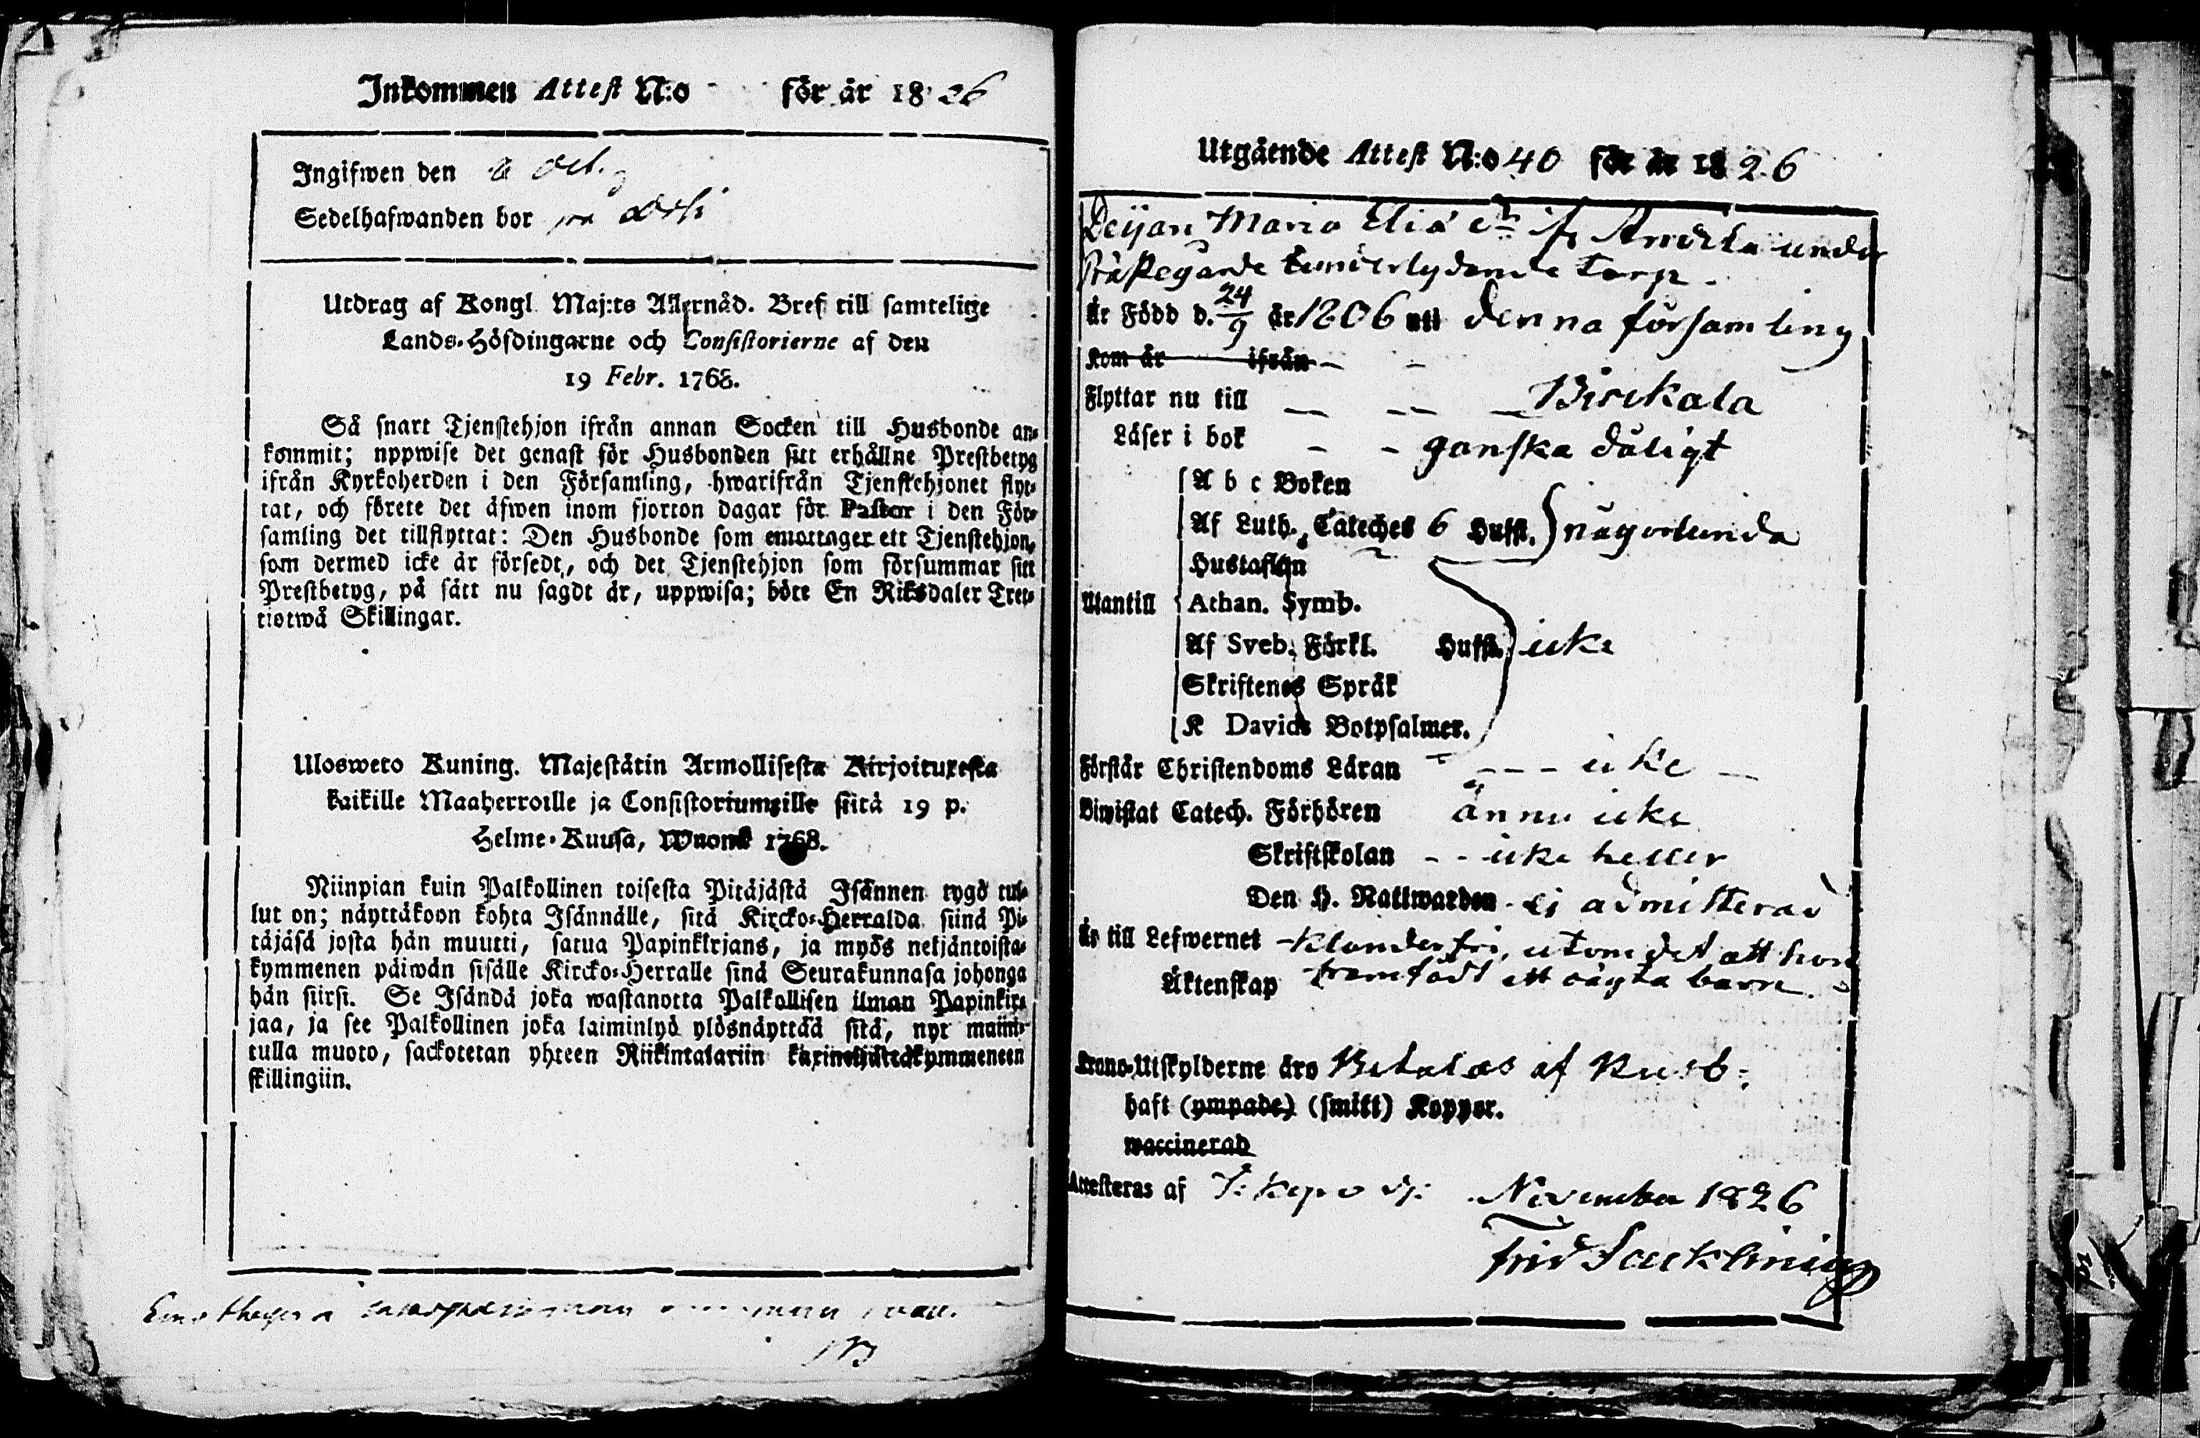 Inkommen Attest N:o för år 1826
Ingifwen den Oct.
Sedelhafwanden bor på
Utdrag af Kongl. Maj:ts Allernåd. Bref till samtelige
Lands-Höfdingarne och Consistorierne af den
19 Febr. 1768.
Så snart Tjenstehjon ifrån annan Socken till Husbonde an-
kommit; uppwise det genast för Husbonden sitt erhållne Prestbetyg
ifrån Kyrkoherden i den Församling, hwarifrån Tjenstehjonet flyt-
tat, och förete det äfwen inom fjorton dagar för Pastor i den För-
samling det tillflyttat: Den Husbonde som emottager ett Tjenstehjon,
som dermed icke är försedt, och det Tjenstehjon som försummar sitt
Prestbetyg, på sätt nu sagdt är, uppwisa; böte En Riksdaler Tret-
tiotwå Skillingar.
Ulosweto Kuning. Majestätin Armollisesta Kirjoituxesta
kaikille Maaherroille ja Consistoriumeille siitä 19 p.
Helme-Kuusa, Wuonna 1768.
Niinpian kuin Palkollinen toisesta Pitäjästä Isännen tygö tul-
lut on; näyttäkoon kohta Isännälle, sitä Kircko-Herralda siinä Pi-
täjäsä josta hän muutti, satua Papinkirjans, ja myös neljäntoista-
kymmenen päiwän sisälle Kircko-Herralle siinä Seurakunnasa johonga
hän siirsi. Se Isändä joka wastanotta Palkollisen ilman Papinkir-
jaa, ja see Palkollinen joka laiminlyö ylösnäyttää sitä, nyt mainit-
tulla muoto, sackotetan yhteen Riikintalariin kaxineljättäkymmeneen
skillingiin.
Utgående Attest N:o 40 för år 1826
Deijan Maria Eliæ dr ifr. under
Präste gårde underlydande torp.
är Född d. 24/9 år 1806 uti denna församling
Kom år ifrån
Flyttar nu till Birkala
Läser i bok ganska dåligt
A b c Boken
Af Luth. Cateches 6 Hufst. någorlunda
Hustaflan
Utantill Athan. Symb.
Af Sveb. Förkl. Hufst. icke
Skriftenes Språk
K Davids Botpsalmer.
Förstår Christendoms Läran icke
Biwistat Catech. Förhören ännu icke
Skriftskolan icke heller
Den H. Nattwarden ej admitterad
Är till Lefwernet klanderfri, utom det att hon
Äktenskap framfödt ett oägta barn.
Krono-Utskylderne äro Betalas af Husb:
haft (ympade) (smitt) Koppor.
waccinerad
Attesteras af November 1826